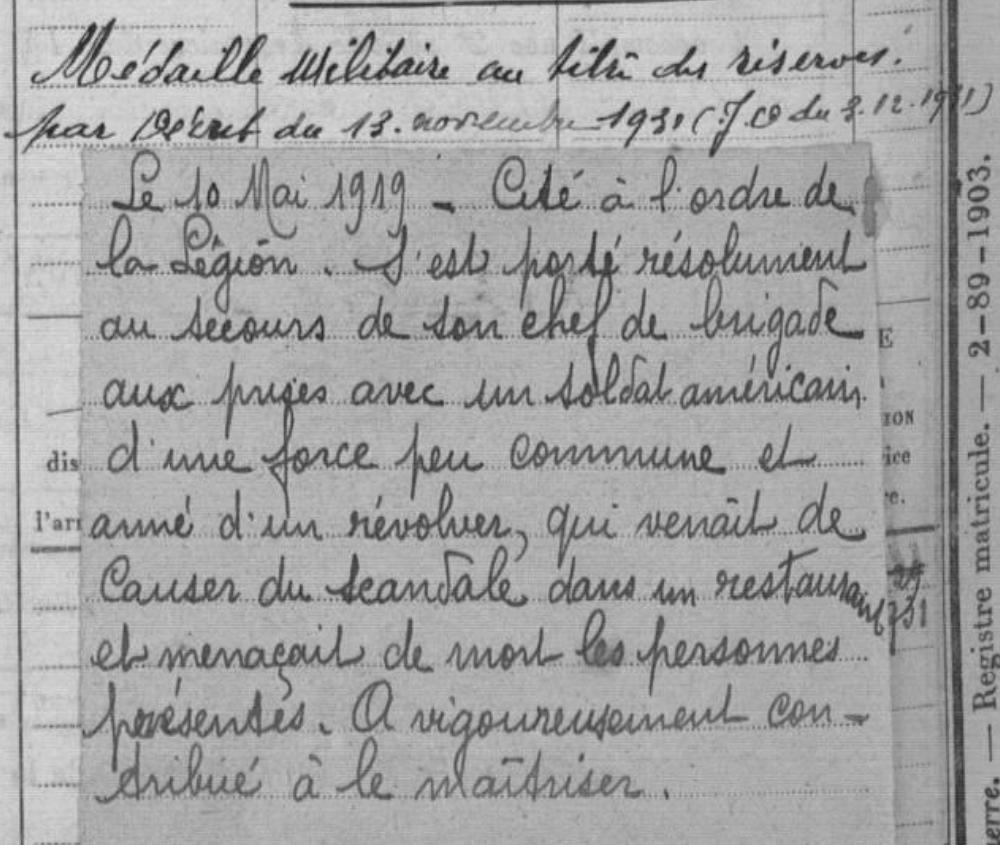 Médaille Militaire au titre des réserves.
par Décret du 13. novembre 1931 (J.O du 3.12.1931)
Le 10 Mai 1919 - Cité à l'ordre de
la Légion. S'est porté résolument
au secours de son chef de brigade
aux prises avec un soldat américain
d'une force peu commune et
armé d'un révolver, qui venait de
causer du scandale dans un restaurant
et menaçait de mort les personnes
présentes. A vigoureusement con-
tribué à le maîtriser.
E
ION
dis
ice
re.
l'ar
731
erre. — Registre matricule. — 2-89-1903.